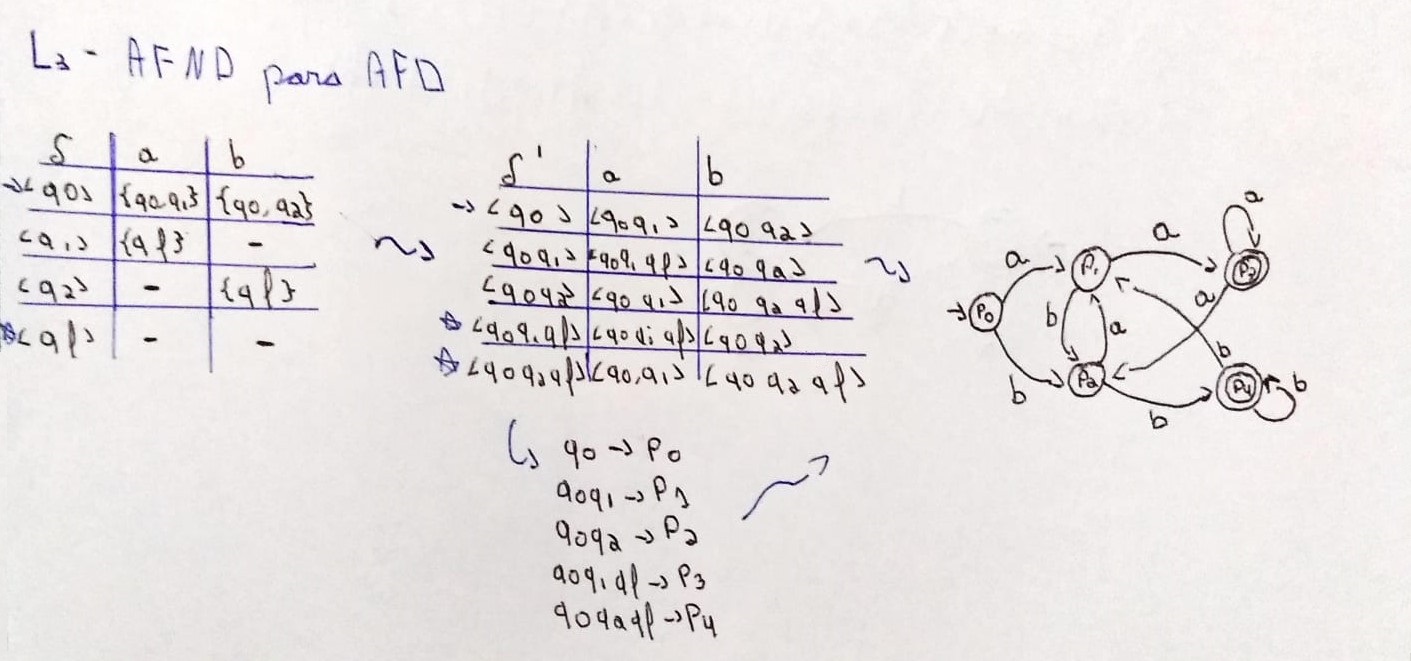 L3 - AFND para AFD
δ | a | b
→<q0> | {q0,q1} | {q0,q2}
<q1> | {qf} | -
<q2> | - | {qf}
☆<qf> | - | -
δ' | a | b
→<q0> | <q0q1> | <q0q2>
<q0q1> | <q0q1qf> | <q0q2>
<q0q2> | <q0q1> | <q0q2qf>
☆<q0q1qf> | <q0q1qf> | <q0q2>
☆<q0q2qf> | <q0,q1> | <q0q2qf>
q0 → P0
q0q1 → P1
q0q2 → P2
q0q1qf → P3
q0q2qf → P4
a
a
a
P1
P3
P0
b
a
a
b
P2
P4
b
b
b